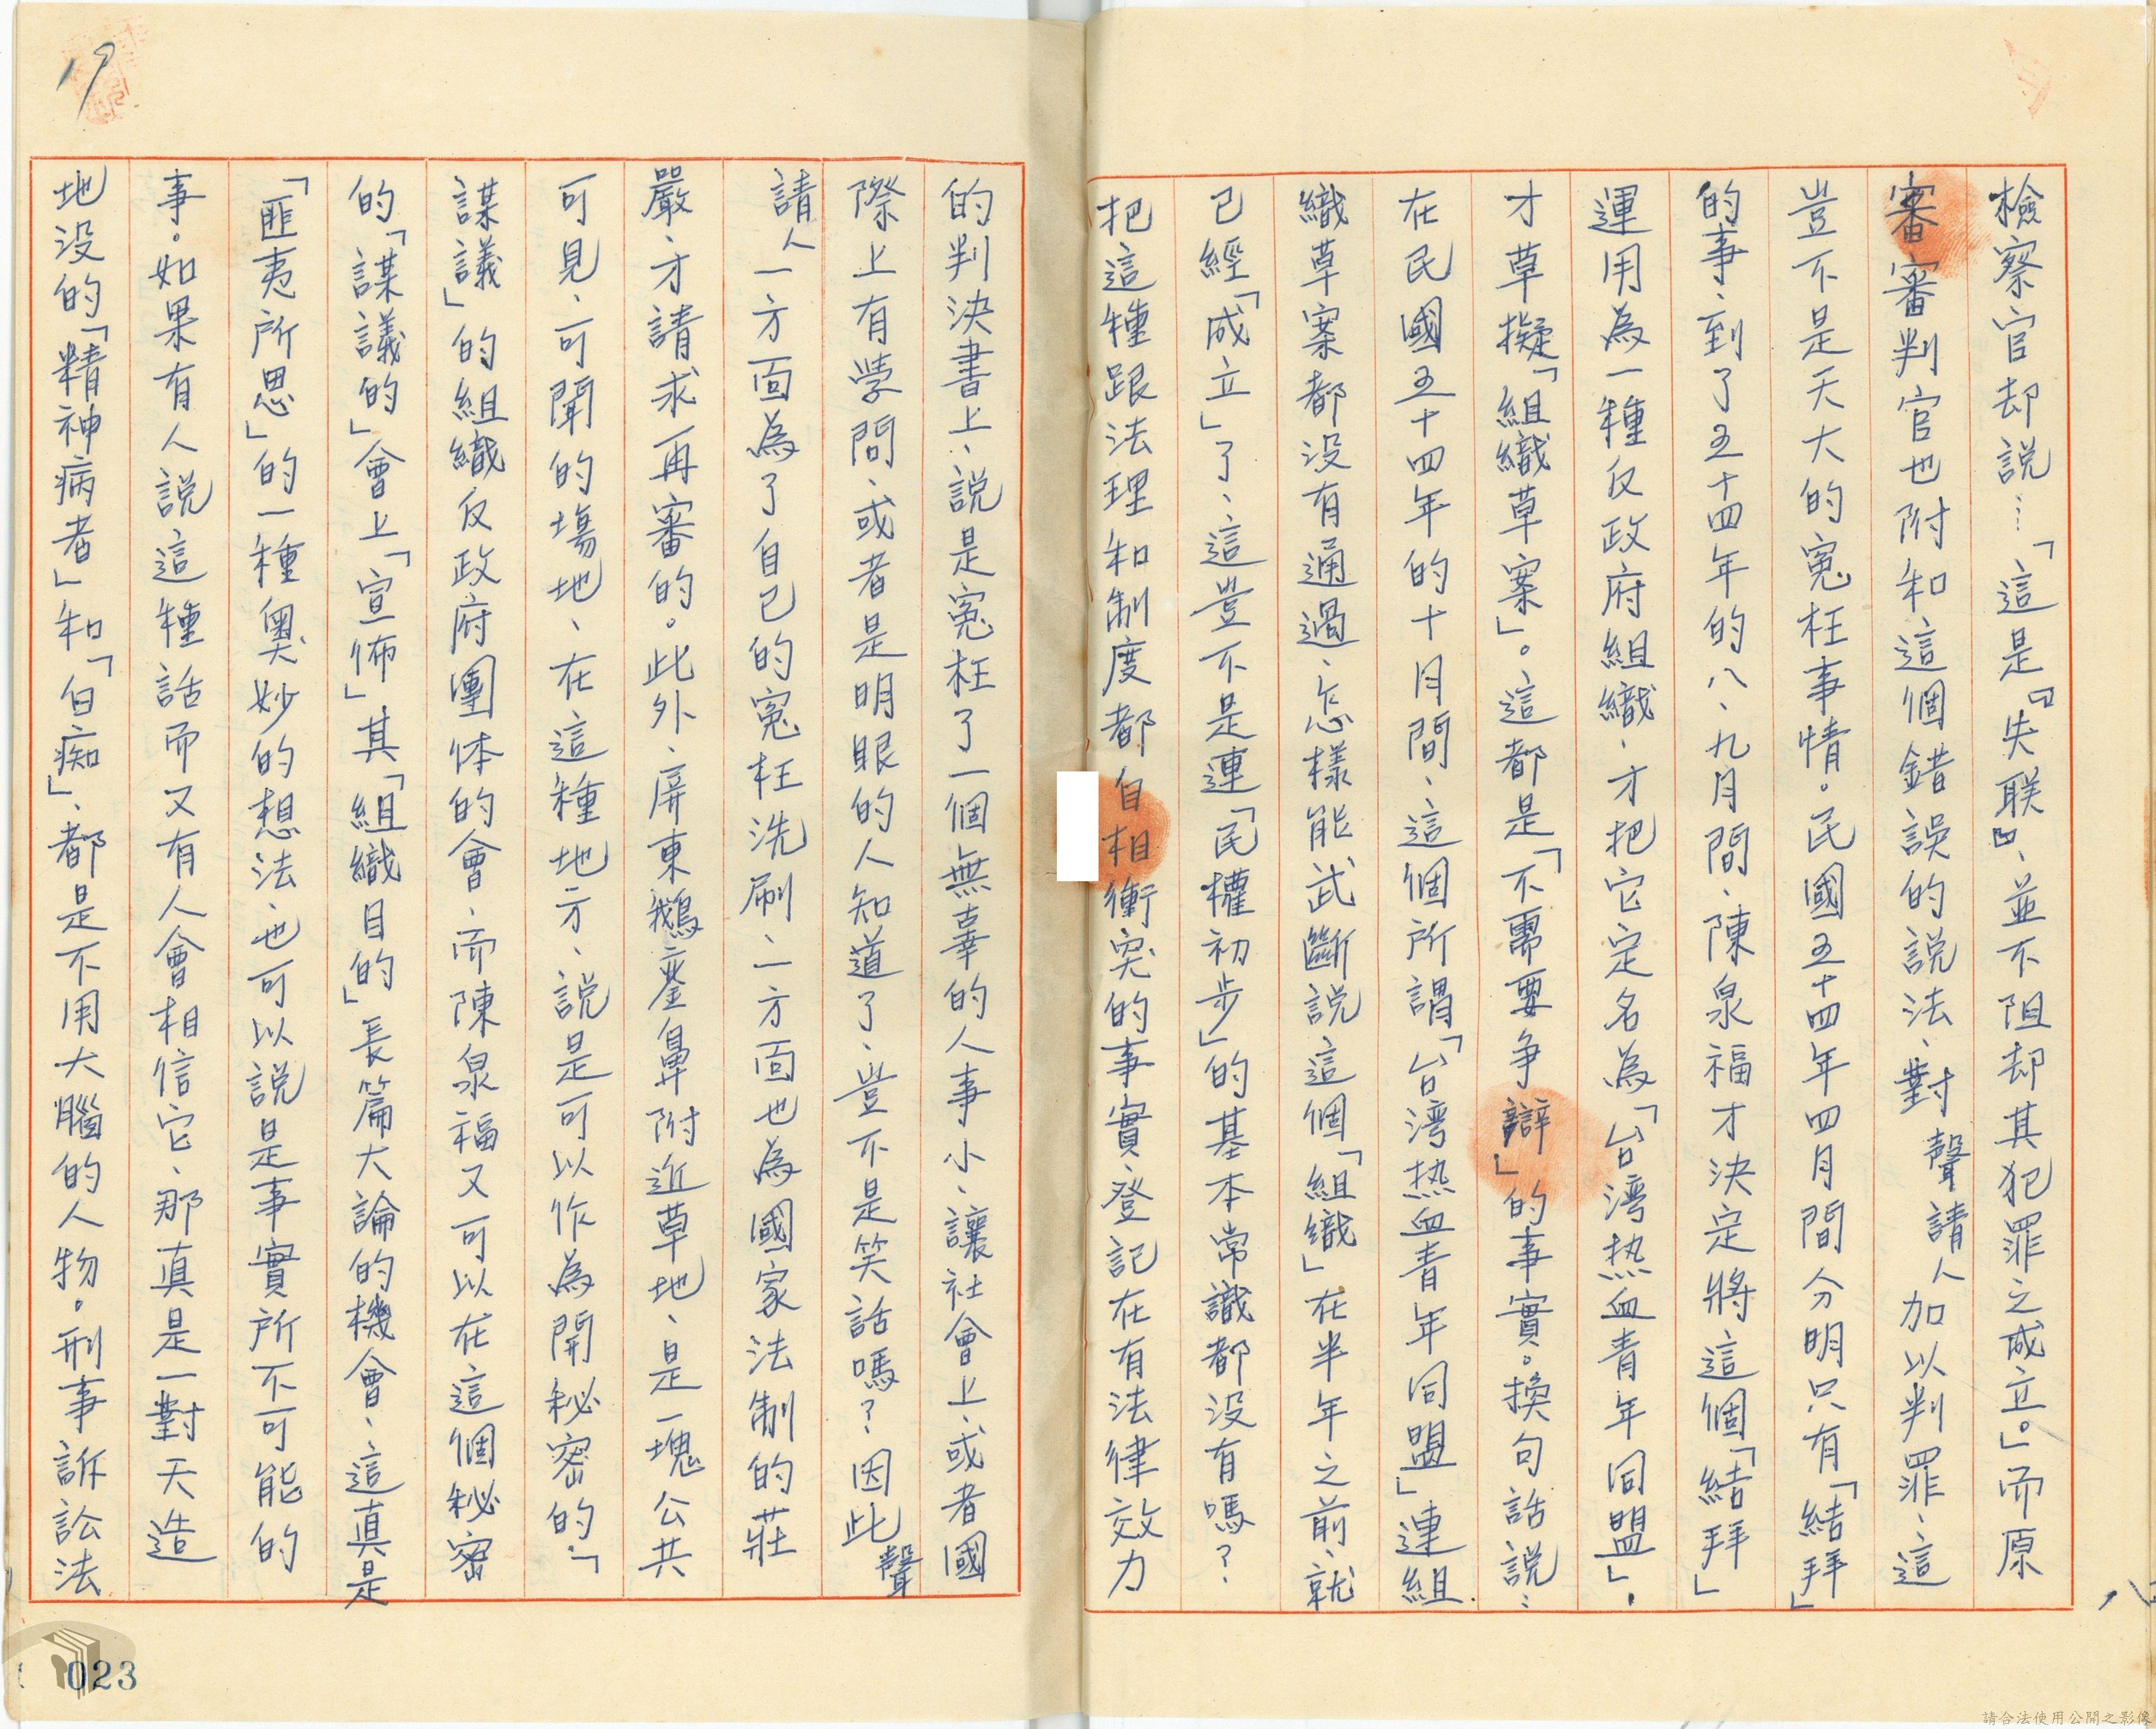 檢察官却説：「這是『失联』、並不阻却其犯罪之成立。」而原
審審判官也附和這個錯誤的説法、對聲請人加以判罪、這
豈不是天大的冤枉事情。民國五十四年四月間分明只有「結拜」
的事、到了五十四年的八、九月間、陳泉福才決定將這個「結拜」
運用為一種反政府組織、才把它定名為「台湾热血青年同盟」、
才草擬「組織草案」。這都是「不需要争辯」的事實。換句話説：
在民國五十四年的十月間、這個所謂「台湾热血青年同盟」連組
織草案都没有通過、怎樣能武斷説這個「組織」在半年之前、就
已經「成立」了、這豈不是連「民權初步」的基本常識都没有嗎？
把這種跟法理和制度都自相衝突的事實登記在有法律效力
的判決書上、説是冤枉了一個無辜的人事小、讓社會上、或者國
際上有學問、或者是明眼的人知道了、豈不是笑話嗎？因此聲
請人一方面為了自己的冤枉洗刷、一方面也為國家法制的莊
嚴才請求再審的。此外、屏東鵝鑾鼻附近草地、是一塊公共
可見、可聞的場地、在這種地方、説是可以作為開秘密的「
謀議」的組織反政府團体的會、而陳泉福又可以在這個秘密
的「謀議的」會上「宣佈」其「組織目的」長篇大論的機會、這真是
「匪夷所思」的一種奥妙的想法、也可以説是事實所不可能的
事。如果有人説這種話而又有人會相信它、那真是一對天造
地没的「精神病者」和「白痴」、都是不用大腦的人物。刑事訴訟法
17
023
請合法使用公開之影像